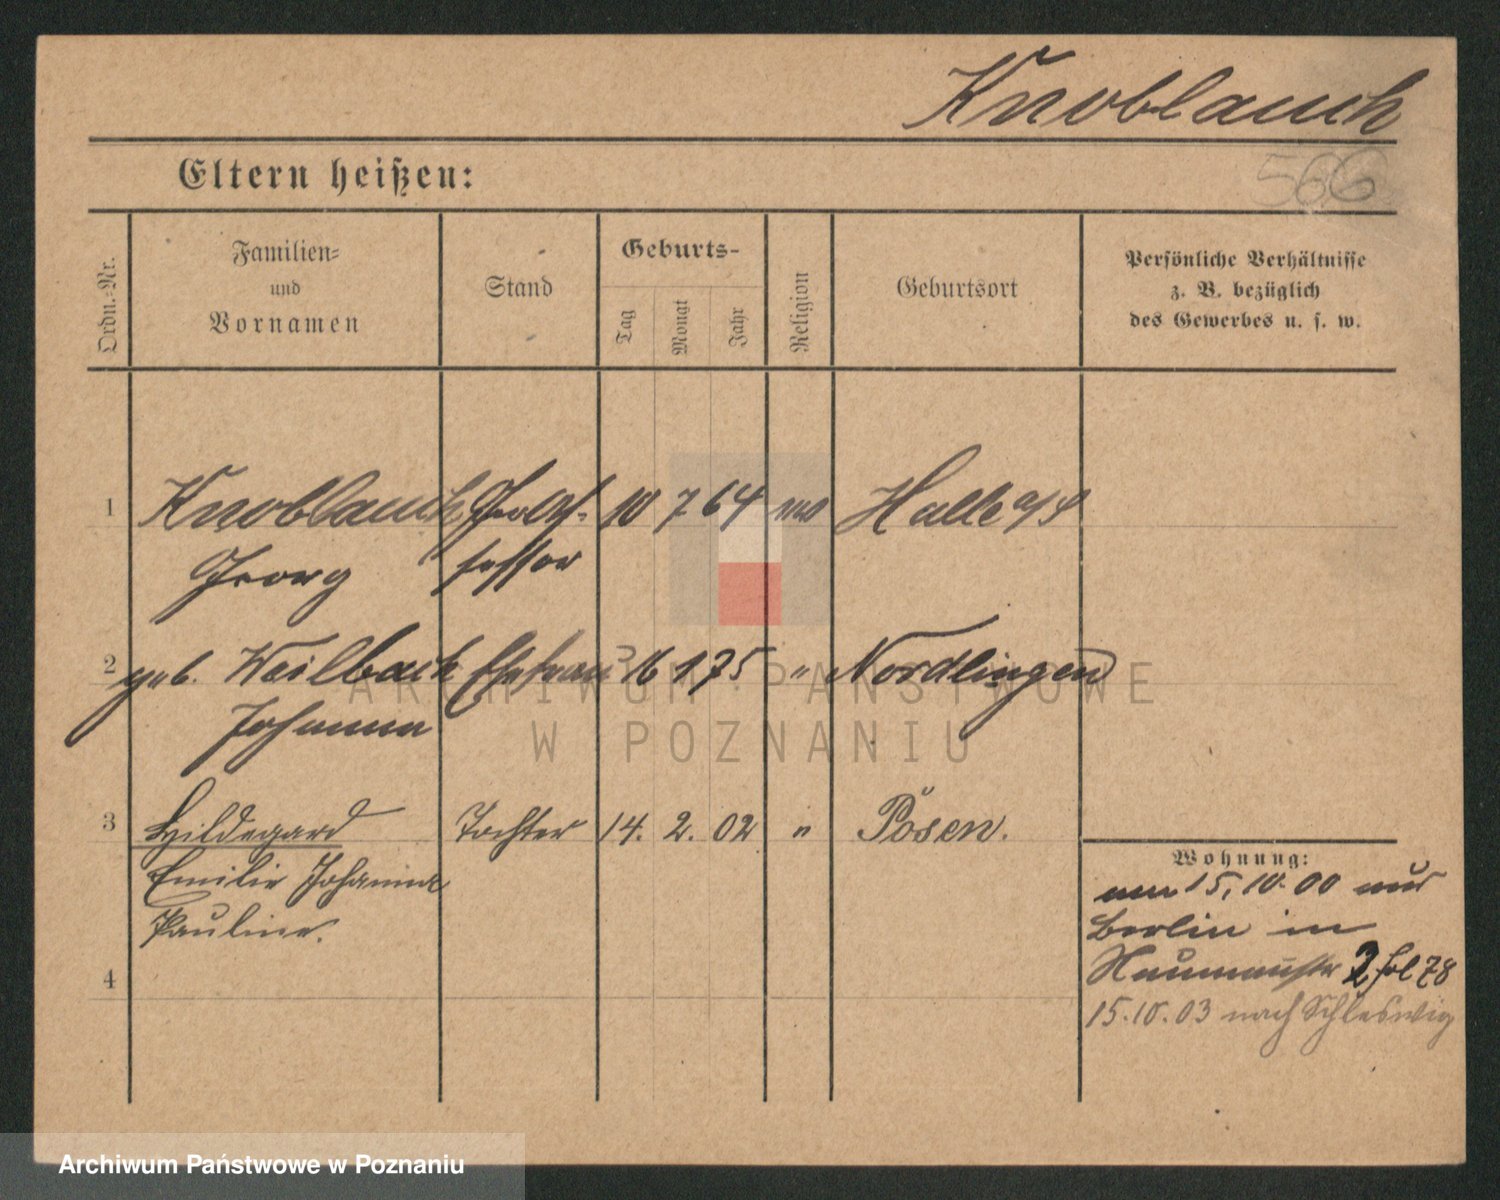 Knoblauch
Eltern heißen:
566
Ordn.-Nr.
Familien-
und
Vornamen
Stand
Geburts-
Tag
Monat
Jahr
Religion
Geburtsort
Persönliche Verhältnisse
z. B. bezüglich
des Gewerbes u. s. w.
1 Knoblauch 10 7 64 Halle a/S
Georg fessor
2 geb. Weilbach Ehefrau 16 1 75 " Nördlingen
Johanna
3 Hildegard Tochter 14. 2. 02 " Posen.
Emilie Johanna
Pauline.
4
Wohnung:
am 15,10.00 aus
Berlin in
Naumannstr 2 fol 78
15.10.03 nach Schleswig
ARCHIWUM PAŃSTWOWE
W POZNANIU
Archiwum Państwowe w Poznaniu